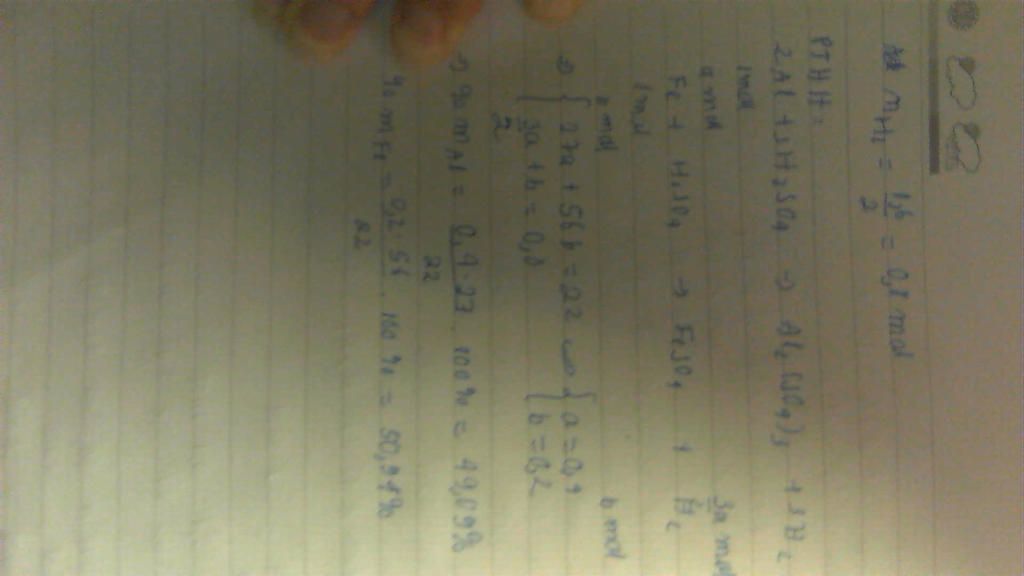 n H2 = 1,6 / 2 = 0,8 mol
PTHH:
2Al + 3H2SO4 → Al2(SO4)3 + 3H2
1mol
a mol 3a/2 mol
Fe + H2SO4 → FeSO4 + H2
1mol
b mol b mol
=> { 27a + 56b = 22 { a = 0,4
{ 3a/2 + b = 0,8 { b = 0,2
% mAl = 0,4.27 / 22 . 100% = 49,09%
% mFe = 0,2.56 / 22 . 100% = 50,91%